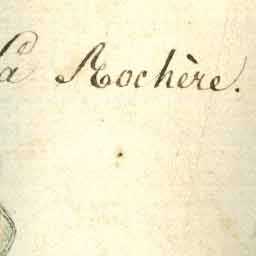 la Rochère.